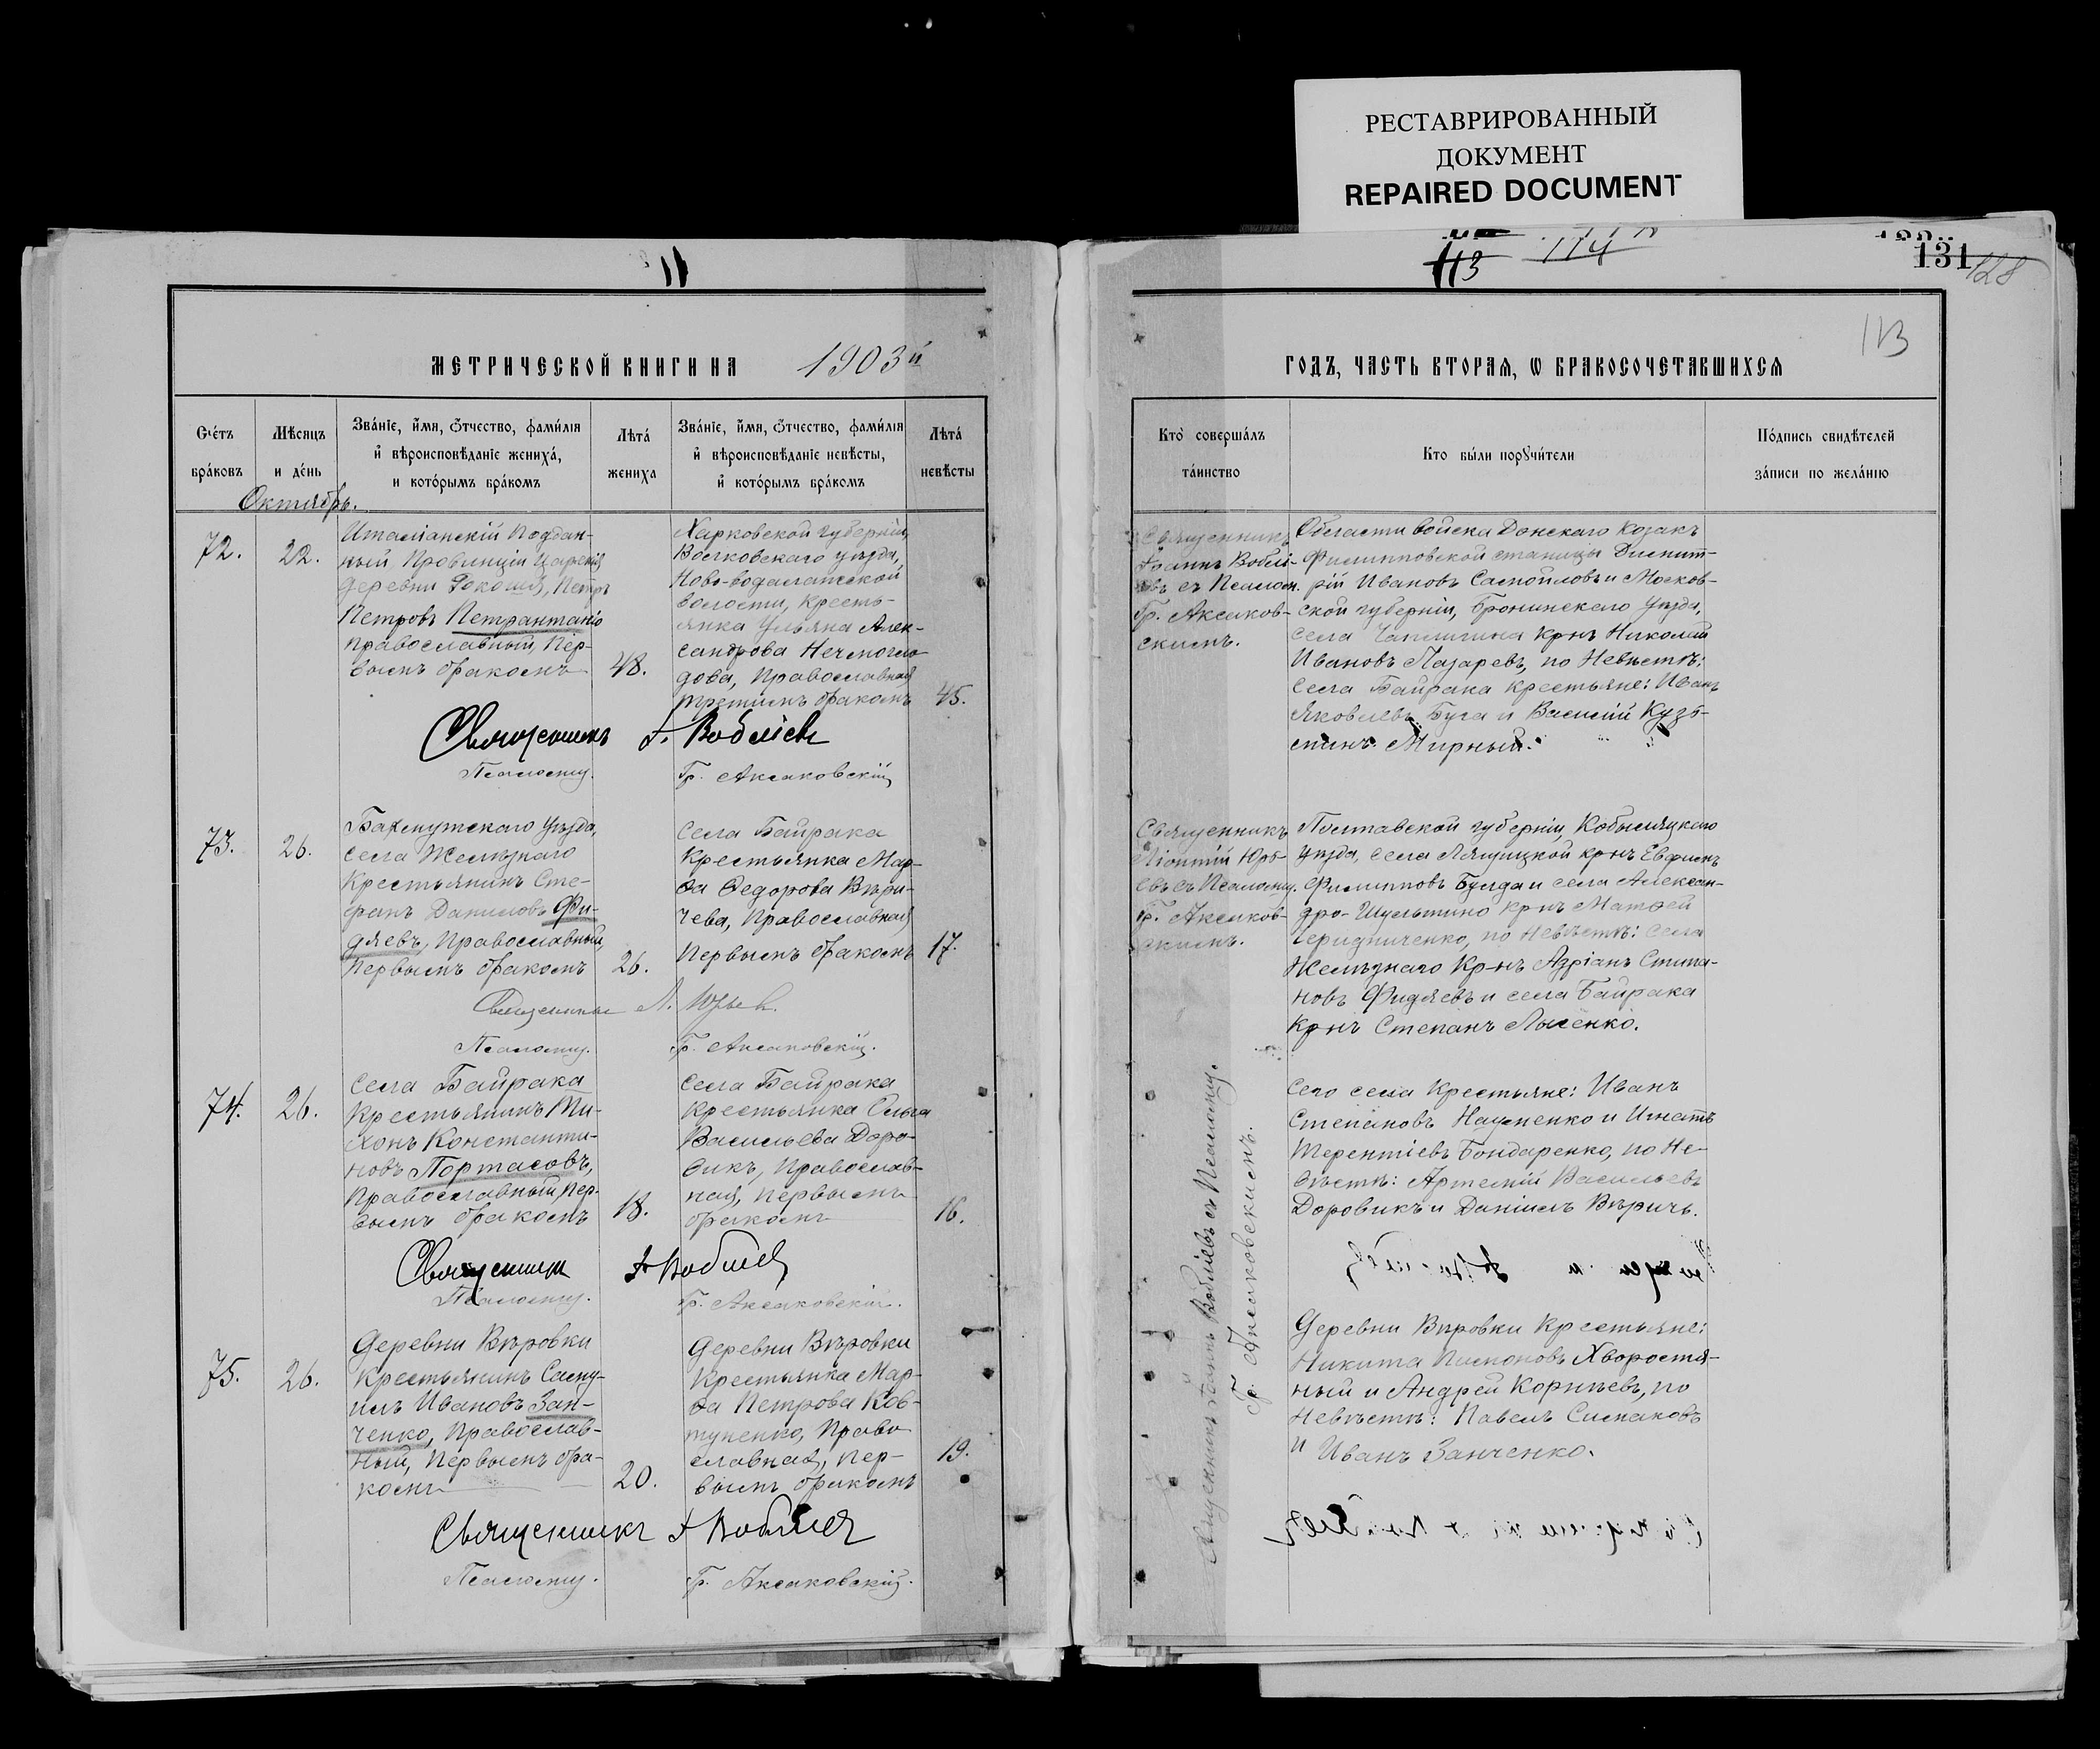 РЕСТАВРИРОВАННЫЙ
ДОКУМЕНТ
REPAIRED DOCUMENT
11
113 114
131 128
113
МЕТРИЧЕСКОЙ КНИГИ НА 1903й
ГОДЪ, ЧАСТЬ ВТОРАѦ, Ѡ БРАКОСОЧЕТАВШИХСѦ
Счетъ браковъ
Мѣсяцъ и день
Званіе, имя, отчество, фамилія
и вѣроисповѣданіе жениха,
и которымъ бракомъ
Лѣта жениха
Званіе, имя, отчество, фамилія
и вѣроисповѣданіе невѣсты,
и которымъ бракомъ
Лѣта невѣсты
Кто совершалъ
таинство
Кто были поручители
Подпись свидѣтелей
записи по желанію
Октябрь.
72.
22.
Италіанскій Поддан-
ный, Провинціи
деревни Петръ
Петровъ Петрантаніо
православный, Пер-
вымъ бракомъ
48.
Харковской губерніи,
Волковскаго уѣзда,
Ново-водалажской
волости, кресть-
янка Ульяна Алек-
сандрова Нечмогло-
дова, Православная
третимъ бракомъ
45.
Священникъ
Іоаннъ Воблі-
евъ съ Псалом.
Гр. Аксаков-
скимъ.
Области войска Донскаго Козакъ
Филипповской станицы Димит-
рій Ивановъ Самойловъ и Москов-
ской губерніи, Бронинскаго Уѣзда,
села Чаплигина крнъ Николай
Ивановъ Лазаревъ, по Невѣстѣ:
села Байрака крестьяне: Иванъ
Яковлевъ Буга и Василій Кузь-
минъ Мирный.
Священникъ І. Вобліевъ
Псаломщ. Гр. Аксаковскій
73.
26.
Бахмутскаго Уѣзда,
села Желѣзнаго
Крестьянинъ Сте-
фанъ Даниловъ Фи-
дяевъ, Православный
Первымъ бракомъ
26.
Села Байрака
Крестьянка Мар-
ѳа Ѳедорова Вѣри-
чева, Православная
Первымъ бракомъ
17.
Священникъ
Ліонтій Юрь-
евъ съ Псаломщ.
Гр. Аксаков-
скимъ.
Полтавской губерніи, Кобыляцкаго
уѣзда, села Лящицкой крнъ Евфимъ
Филипповъ Булда и села Алексан-
дро-Шультино крнъ Матѳей
Чередниченко, по Невѣстѣ: села
Желѣзнаго Кр-нъ Адріанъ Стипа-
новъ Фидяевъ и села Байрака
крнъ Степанъ Лысенко.
Священникъ Л. Юрьев.
Псаломщ. Гр. Аксаковскій.
74.
26.
Села Байрака
Крестьянинъ Ти-
хонъ Константи-
новъ Портасовъ,
Православный, Пер-
вымъ бракомъ
18.
Села Байрака
Крестьянка Ольга
Васильева Доро-
викъ, Православ-
ная, Первымъ
бракомъ
16.
Сего села Крестьяне: Иванъ
Степановъ Науменко и Игнатъ
Терентіевъ Бондаренко, по Не-
вѣстѣ: Артемій Васильевъ
Доровикъ и Даніилъ Вѣричь.
Священник І. Вобліев
Псаломщ. Гр. Аксаковскій.
75.
26.
Деревни Вѣровки
Крестьянинъ Саму-
илъ Ивановъ Зан-
ченко, Православ-
ный, Первымъ бра-
комъ
20.
Деревни Вѣровки
Крестьянка Мар-
ѳа Петрова Ков-
туненко, Право
славная, Пер-
вымъ бракомъ
19.
Священникъ Іоаннъ Вобліевъ съ Псаломщ.
Гр. Аксаковскимъ.
Деревни Вѣровки Крестьяне:
Никита Пимоновъ Хворостя-
ный и Андрей Корніевъ, по
Невѣстѣ: Павелъ Симаковъ
и Иванъ Занченко.
Священникъ І Воблиев
Псаломщ. Гр. Аксаковскій.